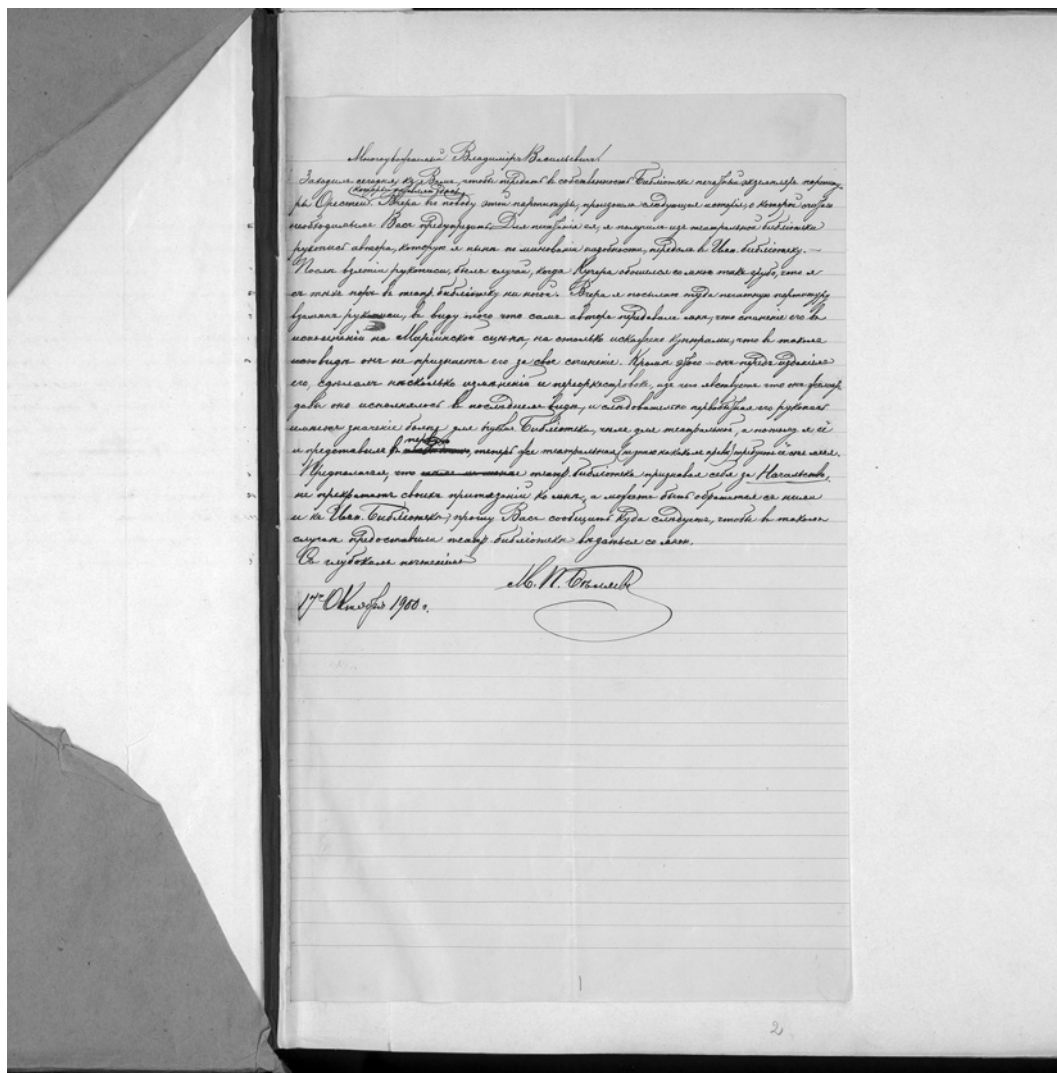 Многоуважаемый Владиміръ Васильевичъ!
Заходилъ сегодня къ Вамъ, чтобы передать въ собственность Библіотеки печатный экземпляръ партиту-
(который оставилъ здѣсь)
ры Орестеи. Вчера по поводу этой партитуры, произошла слѣдующая исторія, о которой считаю
необходимымъ Васъ предупредить. Для печатанія ея, я получилъ изъ театральной библіотеки
рукопись автора, которую я нынѣ по минованіи надобности, передалъ в Имп. библіотеку. —
Послѣ взятія рукописи, былъ случай, когда Кучера обошелся со мною такъ грубо, что я
съ тѣхъ поръ въ театр. библіотеку ни ногой. Вчера я посылалъ туда печатную партитуру
взамѣнъ рукописи, въ виду того что самъ авторъ передавалъ мнѣ, что сочиненіе его въ
исполненіи на Маріинской сценѣ, на столько искажено купюрами, что в такомъ
видѣ онъ не признаетъ его за свое сочиненіе. Кромѣ этого — онъ передъ изданіемъ
его, сдѣлалъ нѣсколько измѣненій и переоркестровокъ, изъ чего явствуетъ что онъ
дабы оно исполнялось в послѣднемъ видѣ, и слѣдовательно первобытная его рукопись
имѣетъ значеніе болѣе для Библіотеки, чѣмъ для театральной, а потому я её
первую
и предоставилъ в теперь же театральная (не знаю по какому праву) требуетъ её отъ меня.
Предполагая, что театр. библіотека признавая себя за Начальство,
не прекратитъ своихъ притязаній ко мнѣ, а можетъ быть обратится съ ними
и къ Имп. Библіотекѣ, прошу Васъ сообщить куда слѣдуетъ, чтобы в такомъ
случаѣ предоставили театр. библіотекѣ вѣдаться со мною.
Съ глубокимъ почтеніемъ
М. П. Бѣляевъ
17го Октября 1900 г.
2